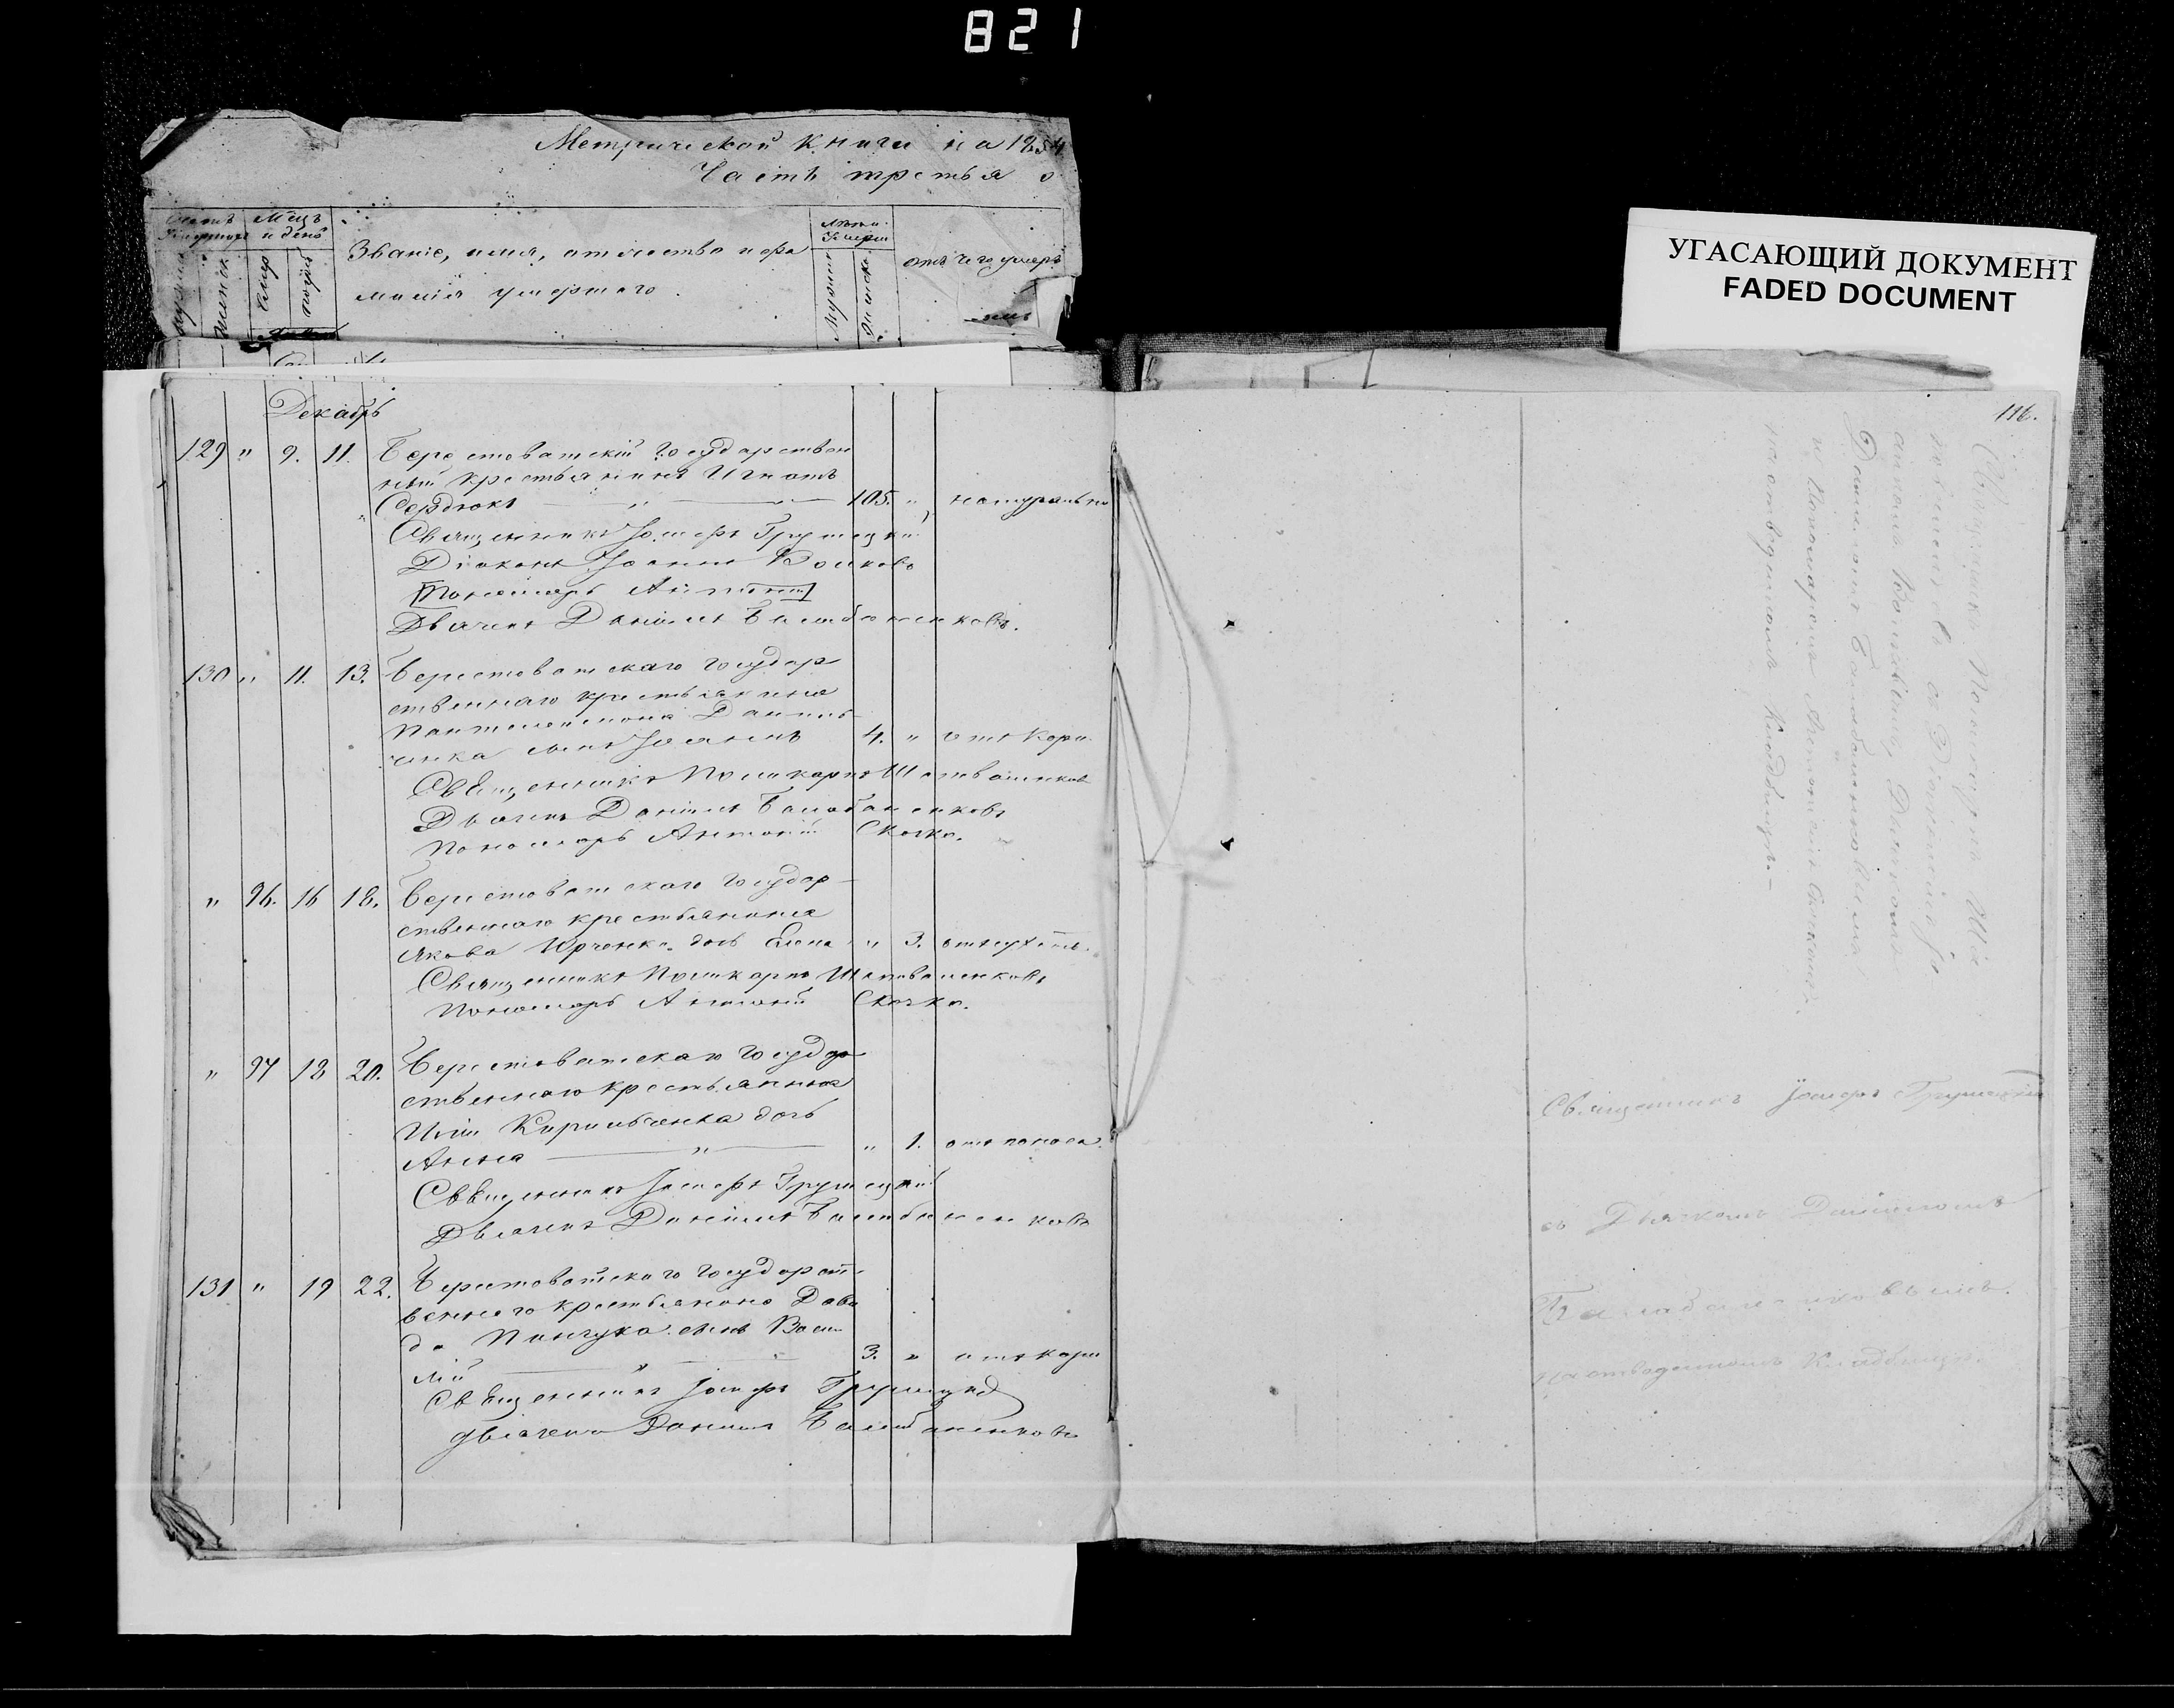 821
Метрической книги на 1854
Часть третья о
Мѣсц.
и день
Званіе, имя, отчество и фа
милія умершаго.
Лѣта
отъ чего умеръ
УГАСАЮЩИЙ ДОКУМЕНТ
FADED DOCUMENT
Декабрь
129 " 9. 11. Берестоватскій государствен
ный крестьянинъ Игнатъ
Сердюкъ — " — 105. " натурально
Священникъ Іосифъ Грушецкій
Діаконъ Іоаннъ Волковъ
Пономарь Антоній
Дьячекъ Даніилъ Балабаненковъ.
130 " 11. 13. Берестоватскаго государ
ственнаго крестьянина
Пантелеимона Данил
ченка сынъ Іоаннъ 4. " отъ кори
Священникъ Поликарпъ Шаповаленковъ
Дьячекъ Даніилъ Балабаненковъ
Пономарь Антоній Скочко.
" 96. 16 18. Берестоватскаго государ
ственнаго крестьянина
Якова Юрченка дочь Елена " 3.
Священникъ Поликарпъ Шаповаленковъ
Пономарь Антоній Скочко.
" 97 18 20. Берестоватскаго государ
ственнаго крестьянина
Иліи Кирильченка дочь
Анна — " — " 1. отъ поноса.
Священникъ Іосифъ Грушецкій
Дьячекъ Даніилъ Балабаненковъ
131 " 19 22. Берестоватскаго государст
веннаго крестьянина Дави
да Панчука сынъ Васи
лій — " — 3. " отъ кори
Священникъ Іосифъ Грушецкій
дьячекъ Даніилъ Балабаненковъ
116.
Священникъ Поликарпъ Ша
поваленковъ съ Діакономъ
Дьячкомъ
Даніиломъ Балабаненковымъ
и Пономаремъ Антоніемъ Скочкомъ
на отведенномъ Кладбищѣ.—
Священникъ Іосифъ Грушецкій
съ Дьячкомъ Даніиломъ
Балабаненковымъ.
на отведенномъ Кладбищѣ.